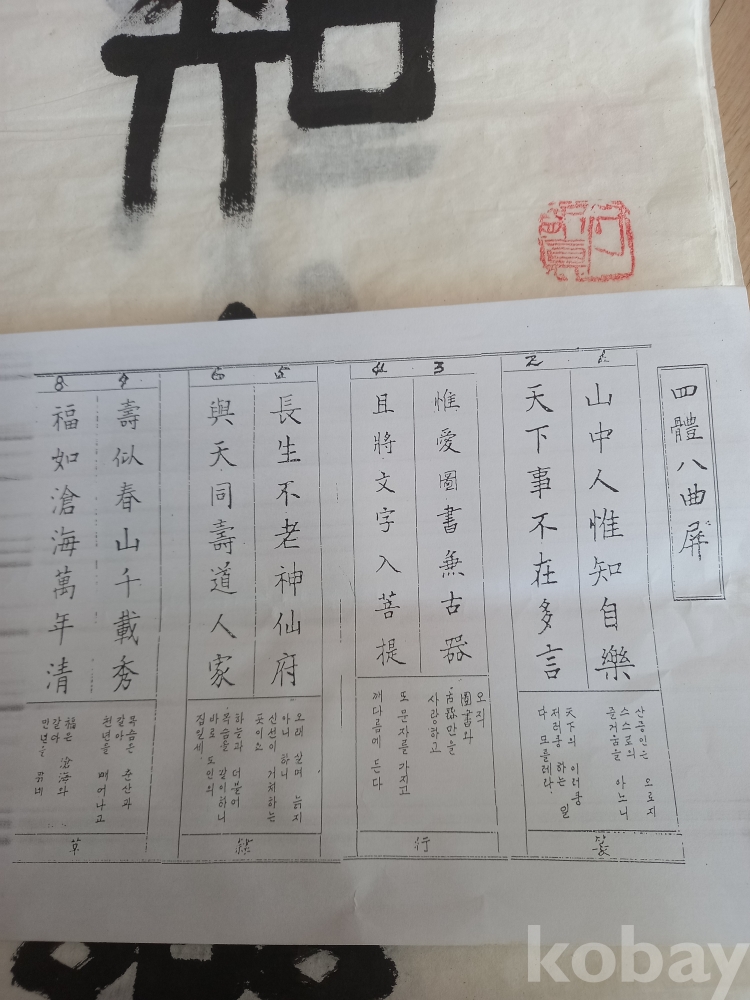 和
四體八曲屛
1
山中人惟知自樂
산중인는 오로지
스스로의
즐거움을 아노니
2
天下事不在多言
天下의 이러쿵
저러쿵 하는 일
다 모를레라.
篆
3
惟愛圖書兼古器
오직
圖書와
古器만을
사랑하고
4
且將文字入菩提
또 문자를 가지고
깨다름에 든다
行
5
長生不老神仙府
오래 살며 늙지
아니 하니
신선이 거처하는
곳이요
6
與天同壽道人家
하늘과 더불어
목숨을 같이하니
바로 도인의
집일세.
隸
7
壽似春山千載秀
목숨은 춘산과
같아
천년을 빼어나고
8
福如滄海萬年清
福은 滄海와
같아
만년을
草
kobay